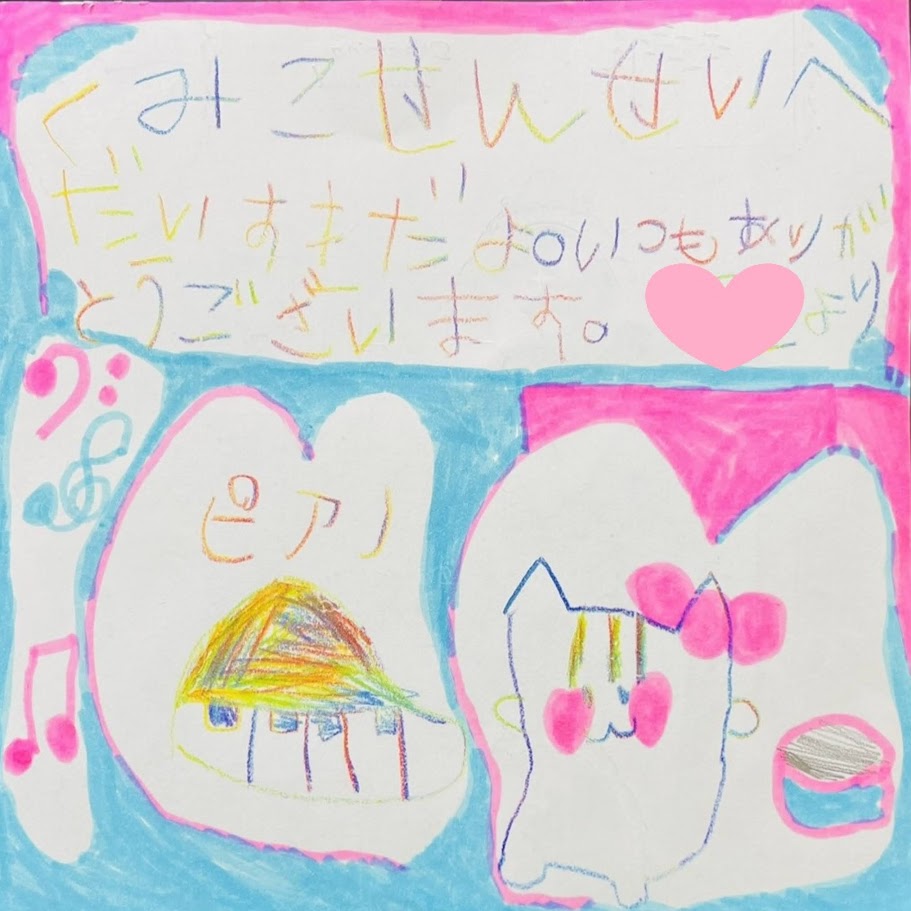 くみこせんせいへ
だいすきだよ。いつもありが
とうございます。 より
ピアノ